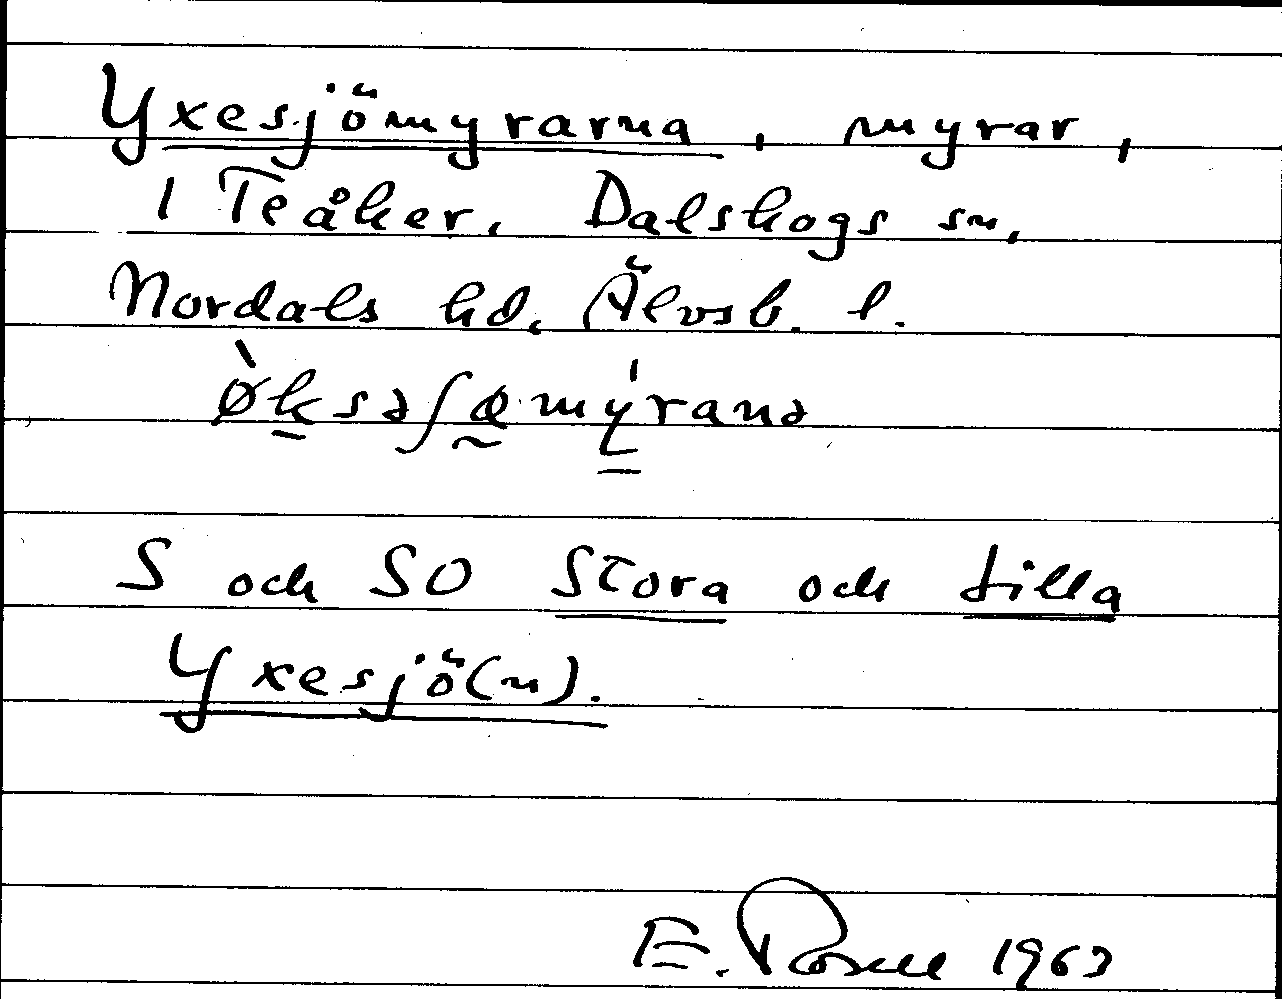 Yxesjömyrarna, myrar,
1 Teåker, Dalskogs sn,
Nordals hd, Älvsb. l.
ø̀ksəʃømýranə
S och SO Stora och Lilla
Yxesjö(n).
E. 1963